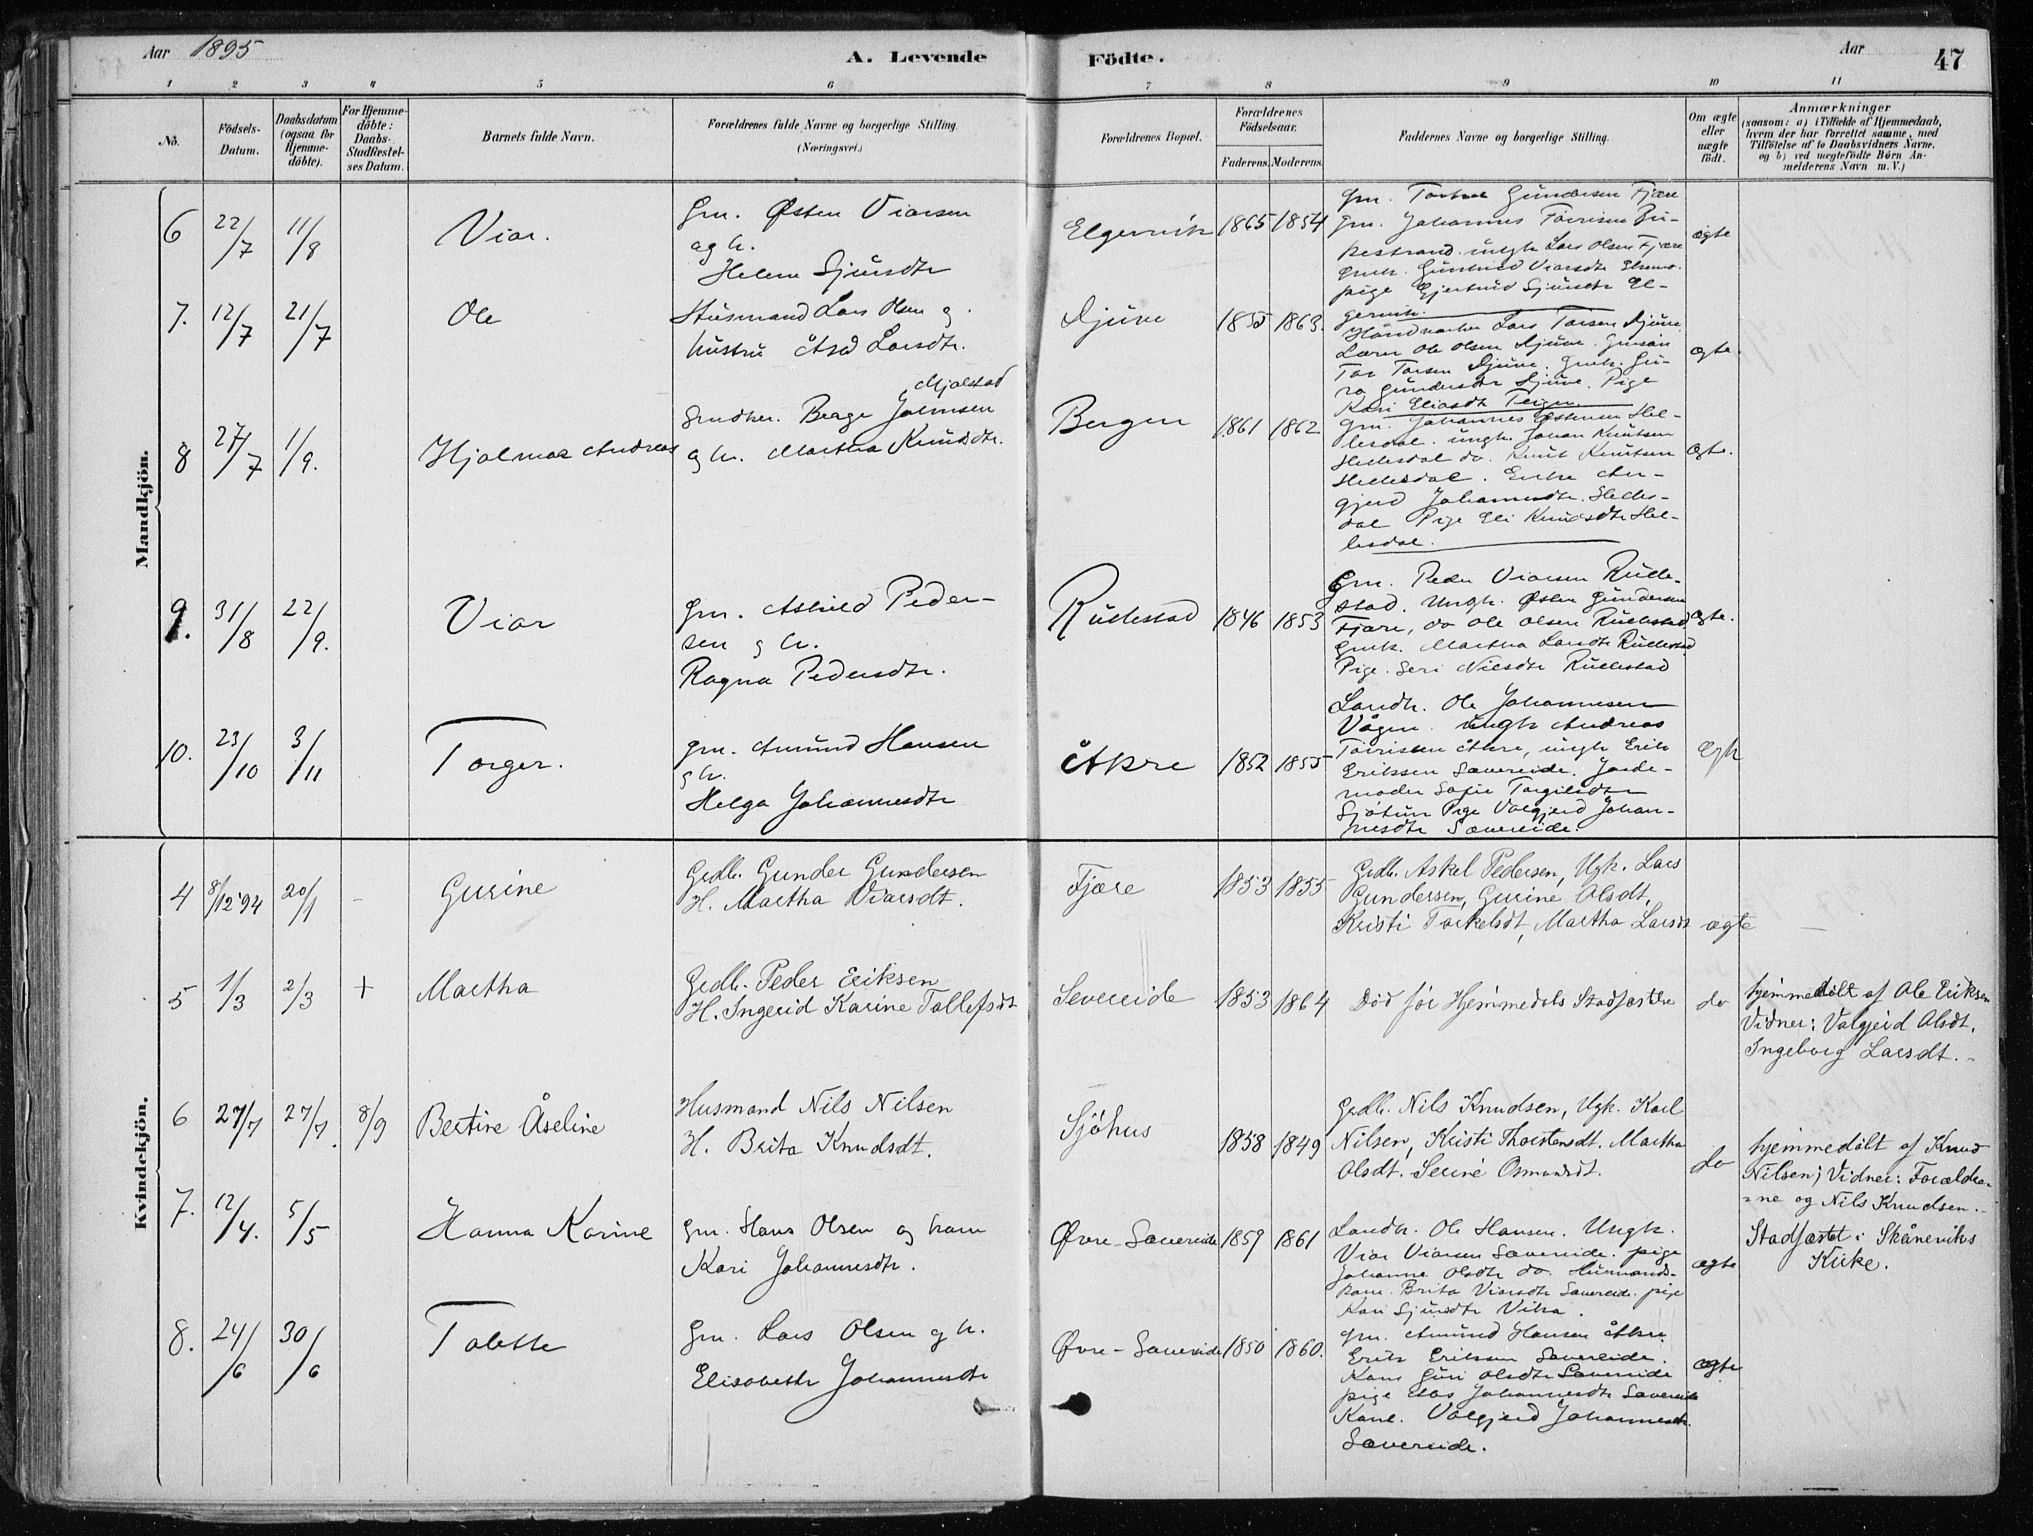 Aar 1895
A. Levende
Födte.
Aar
47
1 2 3 4 5 6 7 8 9 10 11
No.
Födsels-
Datum.
Daabsdatum
(ogsaa for
Hjemme-
döbte).
For Hjemme-
döbte:
Daabs-
Stadfæstel-
ses Datum.
Barnets fulde Navn.
Forældrenes fulde Navne og borgerlige Stilling.
(Næringsvei.)
Forældrenes Bopæl.
Forældrenes
Födselsaar.
Faderens. Moderens.
Faddernes Navne og borgerlige Stilling.
Om ægte
eller
uægte
födt.
Anmærkninger
(saasom: a) i Tilfælde af Hjemmedaab,
hvem der har forrettet samme, med
Tilföielse af to Daabsvidners Navne,
og b) ved uægtefödte Börn An-
melderens Navn m.V.)
Mandkjön.
6 22/7 11/8 Viar.
Gm. Østen Viarsen
og h.
Helene Sjursdtr
Elgervik 1865 1854
Gm. Gundersen Fjære
Gm. Johannes
pestrand. ungk Lars Olsen Fjære
Gmk. Viarsdtr
pige Gjertrud Sjursdtr El-
gervik.
ægte
7. 12/7 21/7 Ole
Husmand Lars Olsen og
hustru Åsa Larsdtr.
Djuve 1855 1863.
Lars Torsen Djuve
Lærer Ole Olsen Djuve.
Tor Torsen Djuve. Gmk. Gu-
ro Gundersdtr Djuve. Pige
Kari Eliasdtr Teigen
ægte.
8 27/7 1/9. Hjalmar Andreas
Mjelstad
Snedker. Berge Johnsen
og h. Martha Knudsdtr.
Bergen 1861 1862
Gm. Johannes Østensen Hel-
lesdal. ungk. Johan Knutsen
Hellesdal do. Knut Knutsen
Hellesdal. Enke An-
gjerd Johannesdtr. Helles-
dal Pige Eli Knudsdtr Hel-
lesdal.
ægte.
9. 31/8 22/9. Viar
Gm. Peder-
sen og h.
Ragna Pedersdtr.
Rullestad 1846 1853
Gm. Peder Viarsen Rulle-
stad. Ungk. Østen Gundersen
Fjære, do Ole Olsen Rullestad
Gmk. Martha Larsdtr Rullestad
Pige. Seri Nilsdtr Rullestad
ægte.
10. 23/10 3/11 Torger.
Gm. Amund Hansen
og h.
Helga Johannesdtr
Åkre 1852 1855
Landh. Ole Johannesen
Vågen. ungk Andreas
Åkre, ungk Erik
Erikssen Sævereide. Jorde-
moder Sofie Torgilsdtr
Sjötun Pige Valgjerd Johan-
nesdtr Sævereide.
ægte
Kvindekjön.
4 8/12 94 20/1 - Gurine
Grdb. Gunder Gundersen
H. Martha Viarsdt.
Fjære 1853 1855
Grdb. Askel Pedersen, Ugk. Lars
Gunderssen, Gurine Olsdt,
Kristi Torkelsdt, Martha Larsdt
ægte -
5 1/3 2/3 + Martha
Grdb. Peder Eriksen
H. Ingerid Karine Tollefsdt
Severeide 1853 1864
Död før Hjemmedaabs Stadfæstelse
do
hjemmedöbt af Ole Eriksen
Vidner: Valgjerd Olsdt.
Ingeborg Larsdt.
6 27/7 27/7. 8/9 Bertine Åseline
Husmand Nils Nilsen
H. Brita Knudsdt.
Sjöhus 1858 1849
Grdb. Nils Knudsen, Ugk. Karl
Nilsen, Kristi Thorstensdt. Martha
Olsdt. Serine Osmundsdt.
do
hjemmedöbt af Knud
Nilsen; Vidner: Forældre-
ne og Nils Knudsen.
Stadfæstet i Skåneviks
Kirke.
7. 12/4. 5/5 Hanna Karine
Gm. Hans Olsen og kone
Kari Johannesdtr.
Øvre-Sævereide 1859 1861
Landh. Ole Hansen. Ungk.
Viar Viarsen Sævereide. pige
Johanne Olsdtr do. Husmands-
kone. Brita Viarsdtr Sævereide. pige
Kari Sjursdtr Vika.
ægte
8. 24/6 30/6 Tolette
Gm. Lars Olsen og h.
Elisabeth Johannesdtr
Øvre-Sævereide 1850 1860.
Gm. Amund Hansen Åkre
Erik Eriksen Sævereide.
Kone Guri Olsdtr Sævereide
pige Johannesdtr Sævereide
Kone. Valgjerd Johannesdtr.
Sævereide.
ægte